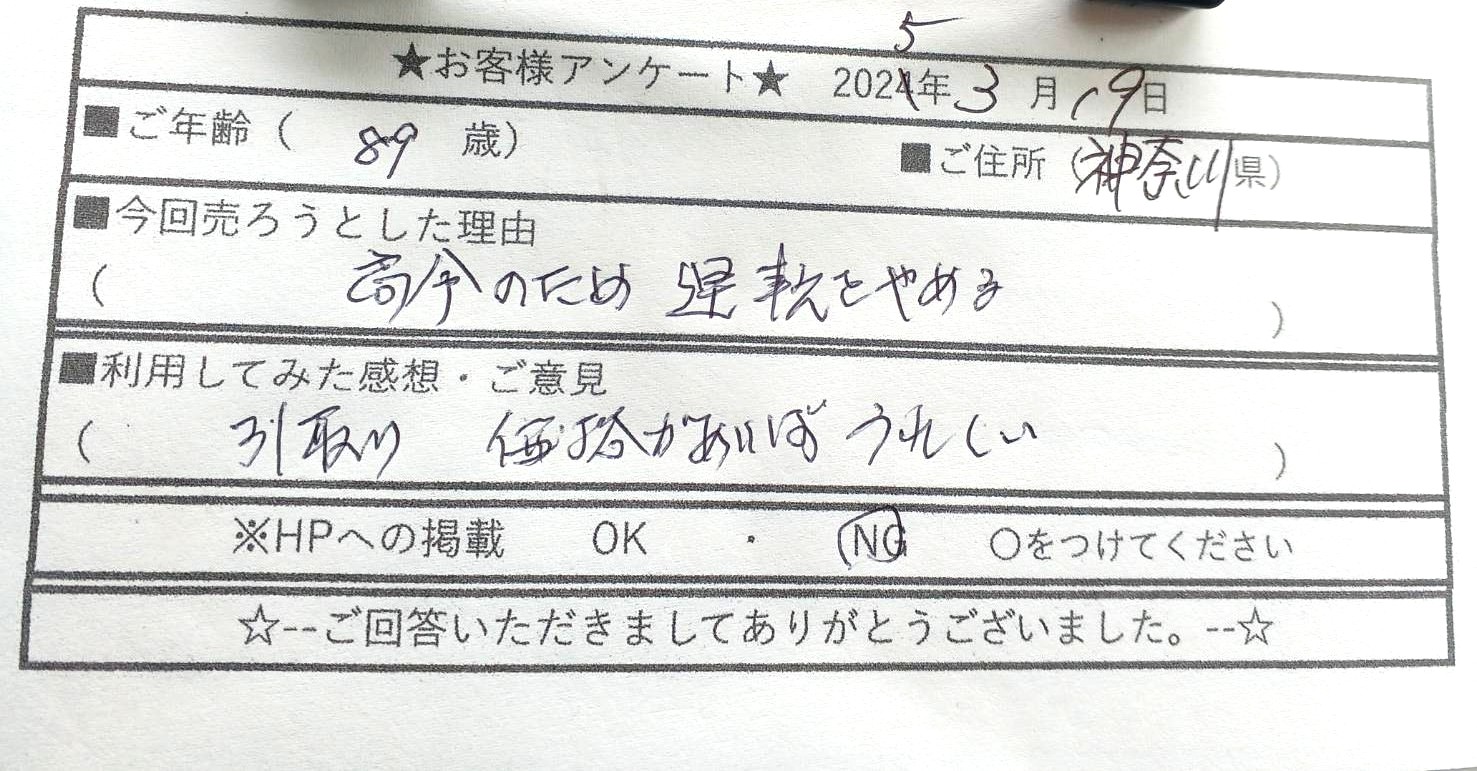 5
★お客様アンケート★ 2024年3月19日
■ご年齢( 89 歳) ■ご住所(神奈川県)
■今回売ろうとした理由
( 高令のため 運転をやめる )
■利用してみた感想・ご意見
( 引取り 価格があればうれしい )
※HPへの掲載 OK ・ NG ○をつけてください
☆--ご回答いただきましてありがとうございました。--☆